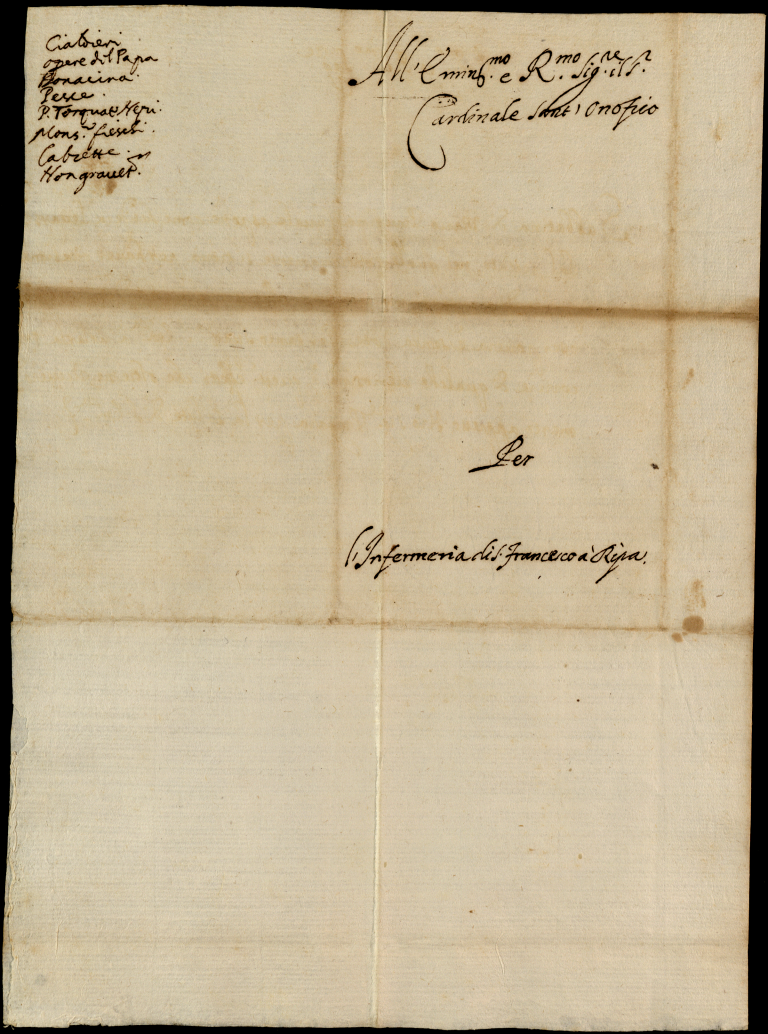 Cialdieri
opere del Papa
Bonacina.
Pesce.
P. Torquato Neri.
Mons.r fieschi.
Cabrette.
Hongrauet.
All' Emins.mo e R.mo Sig.re il S.r
Cardinale Sant' Onofrio
Per
l'Infermeria di S. Francesco à Ripa.